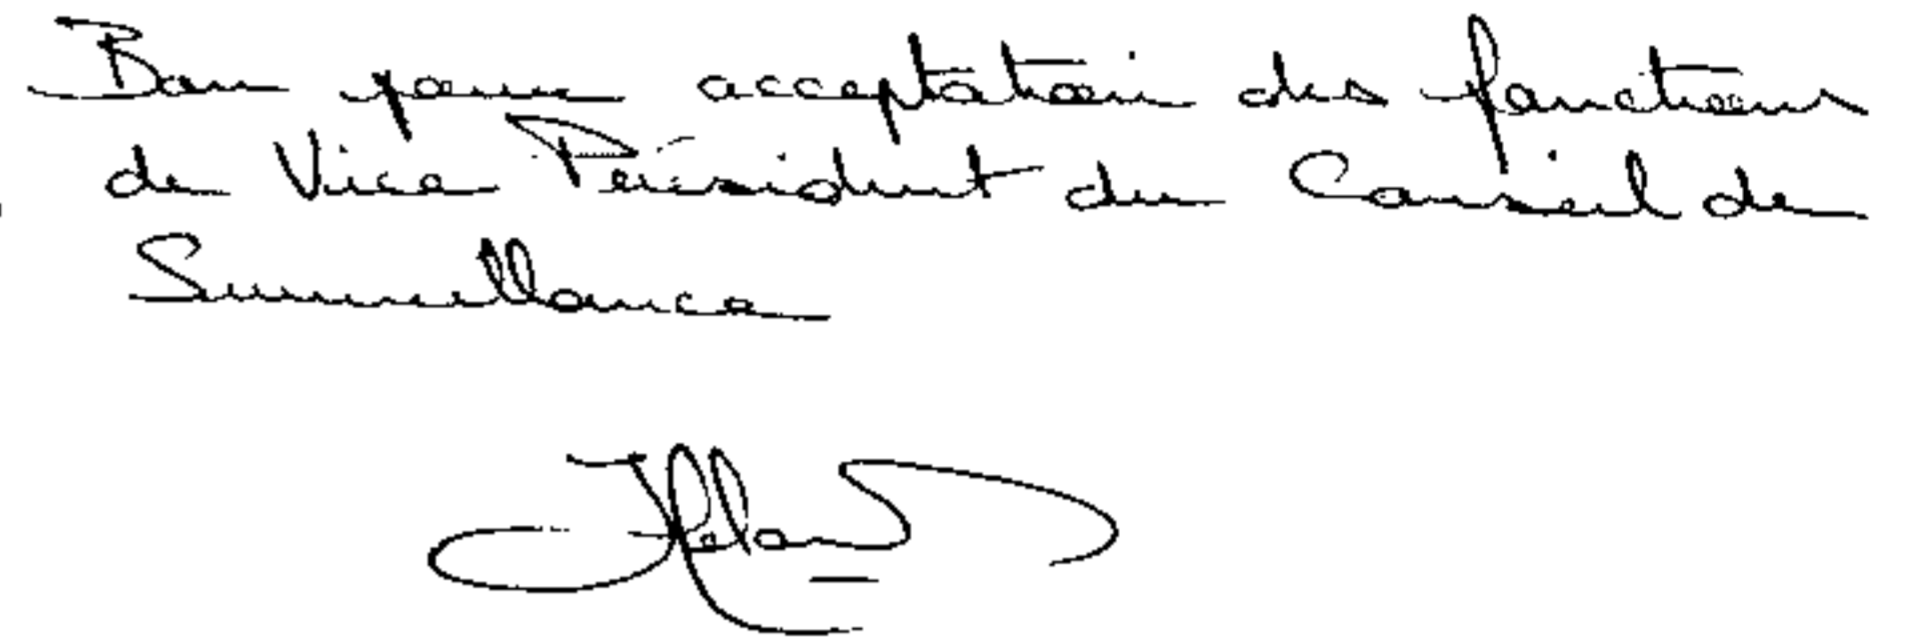 Bon pour acceptation des fonctions
de Vice Président du Conseil de
Surveillance